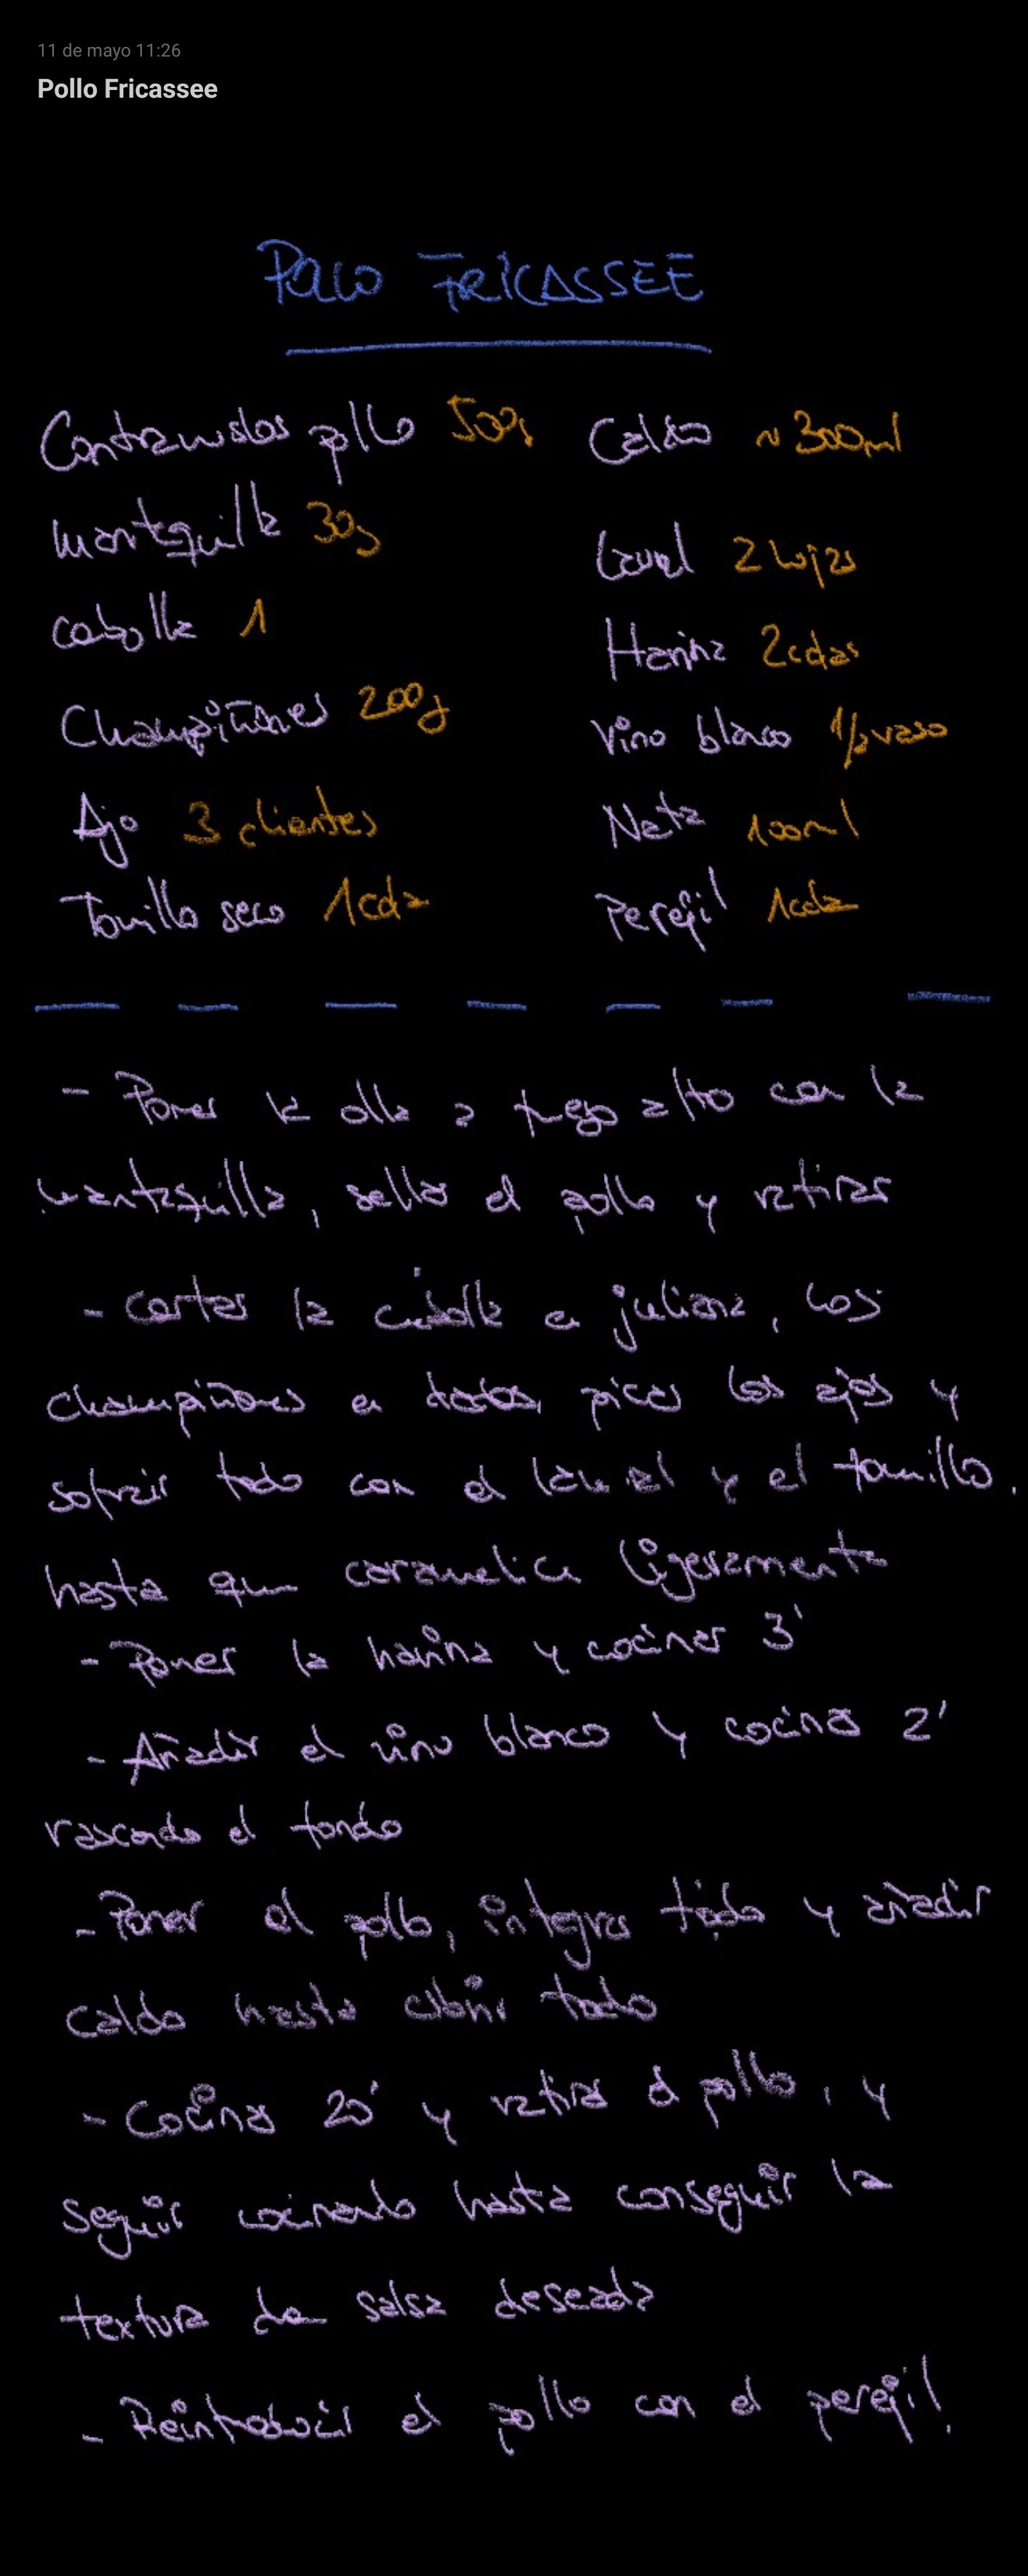 11 de mayo 11:26
Pollo Fricassee
POLLO FRICASSEE
Contramuslos pollo 500g
Mantequilla 30g
Cebolla 1
Champiñones 200g
Ajo 3 dientes
Tomillo seco 1cda
Caldo ~300ml
Laurel 2 hojas
Harina 2cdas
Vino blanco 1/2 vaso
Nata 100ml
Perejil 1cda
- Poner la olla a fuego alto con la
mantequilla, sellar el pollo y retirar
- Cortar la cebolla en juliana, los
champiñones en, picar los ajos y
sofreír todo con el laurel y el tomillo.
hasta que caramelice ligeramente
- Poner la harina y cocinar 3'
- Añadir el vino blanco y cocinar 2'
rascando el fondo
- Poner el pollo, integrar todo y añadir
caldo hasta cubrir todo
- Cocinar 20' y retirar el pollo, y
seguir cocinando hasta conseguir la
textura de salsa deseada
- Reintroducir el pollo con el perejil.